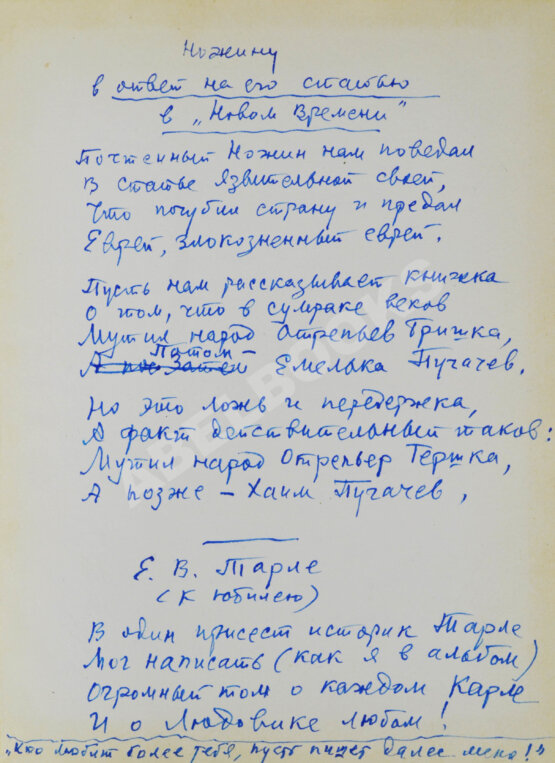 Ножину
в ответ на его статью
в „Новом Времени"
Почтенный Ножин нам поведал
В статье язвительной своей,
Что погубил страну и предал
Еврей, злокозненный еврей.
Пусть нам рассказывает книжка
О том, что в сумраке веков
Мутил народ Отрепьев Гришка,
Потом –
А поз Затем Емелька Пугачев.
Но это ложь и передержка,
А факт действительный таков:
Мутил народ Отрепьер Гершка,
А позже – Хаим Пугачев,
Е. В. Тарле
(к юбилею)
В один присест историк Тарле
Мог написать (как я в альбом)
Огромный том о каждом Карле
И о Людовике любом!
„Кто любит более тебя, пусть пишет далее меня!"
ABEL BOOKS